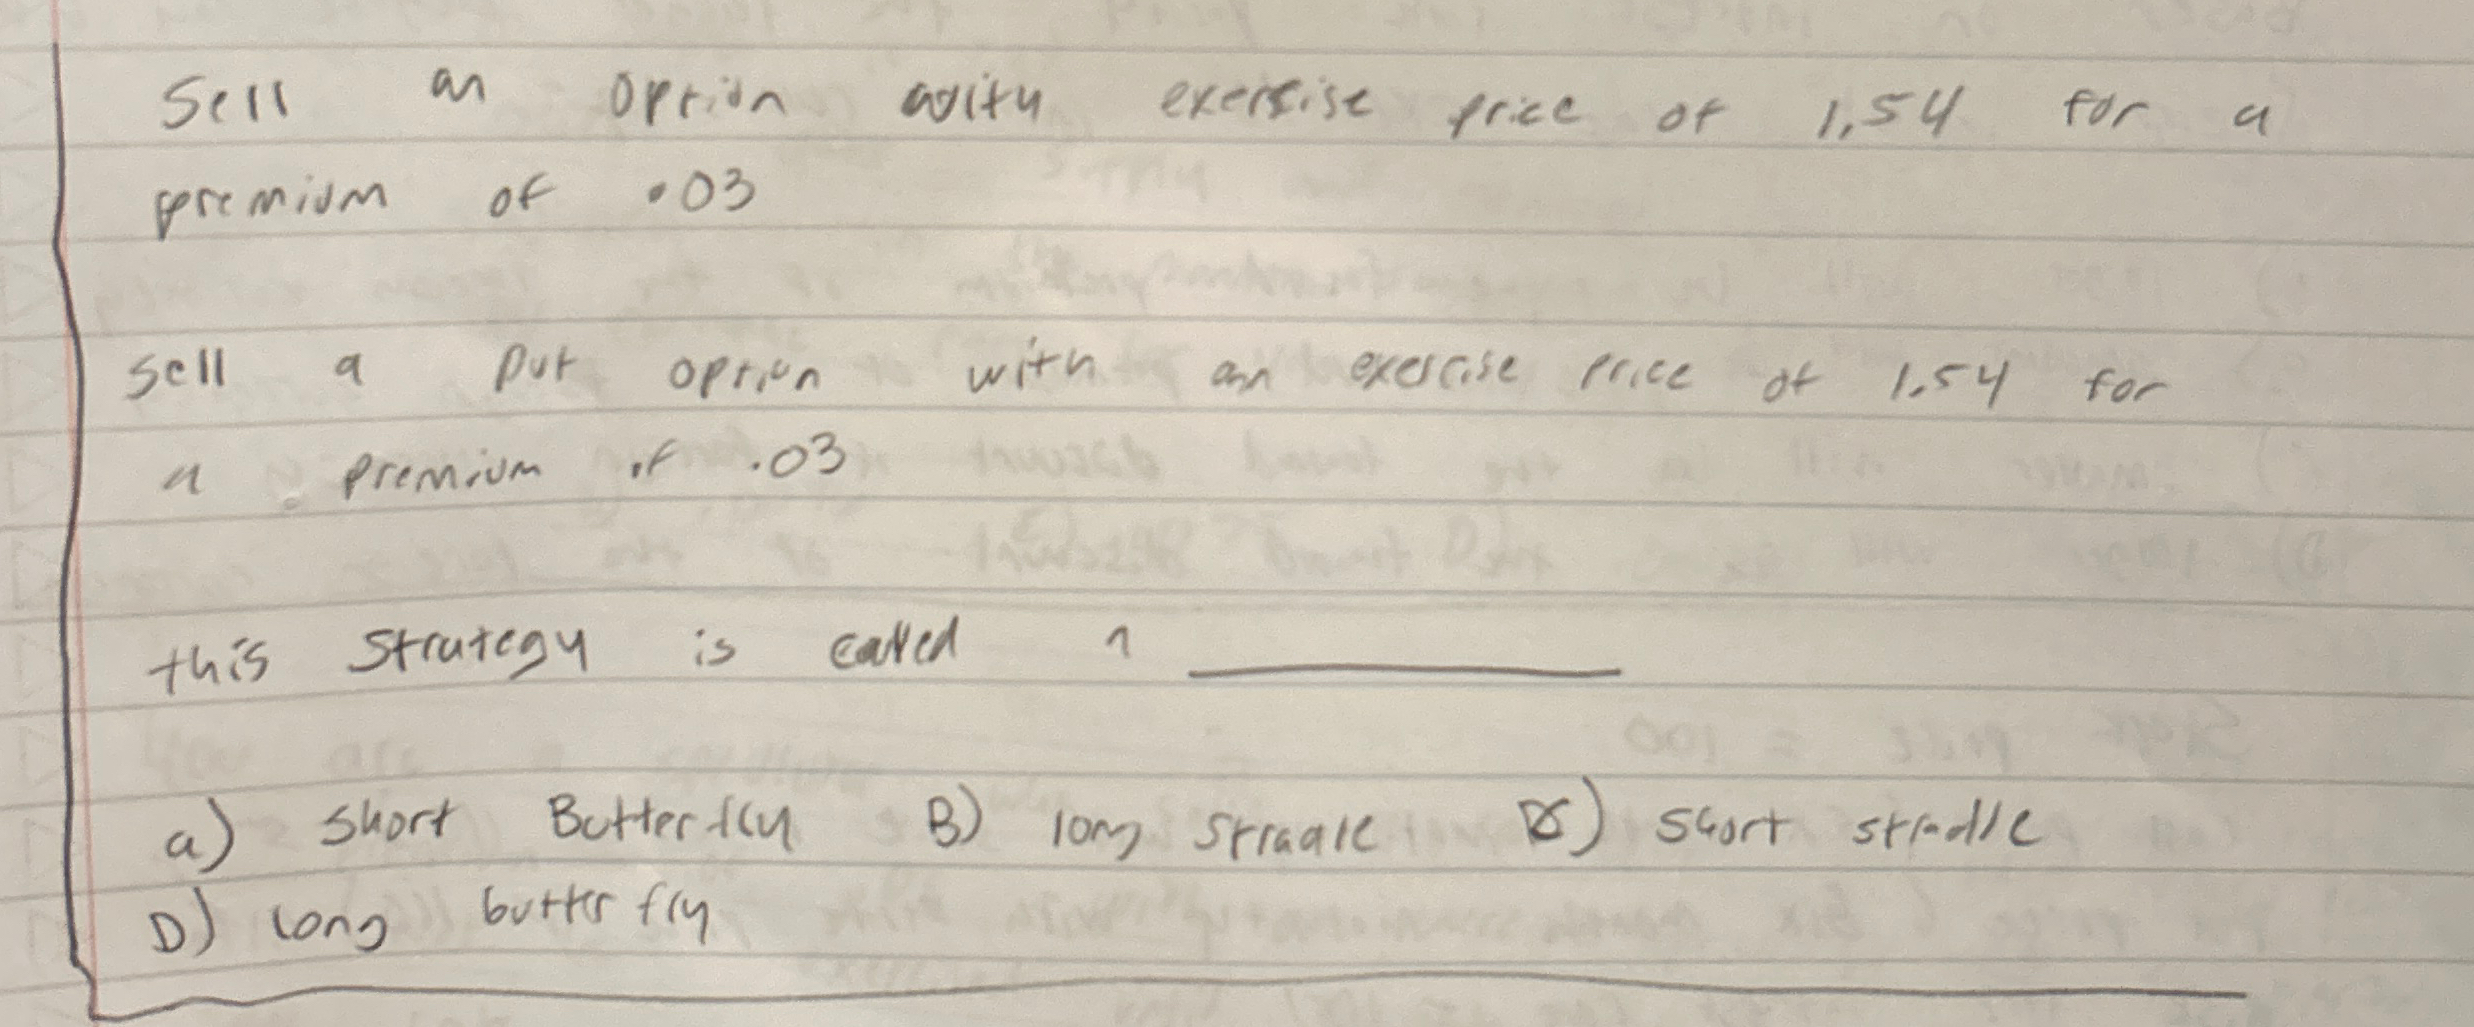 Sell an option with exercise price of 1.54 for a
premium of .03
sell a put option with an exercise price of 1.54 for
a premium of .03
this strategy is called a ________
a) short Butterfly B) long Straddle C) short straddle
D) long butterfly